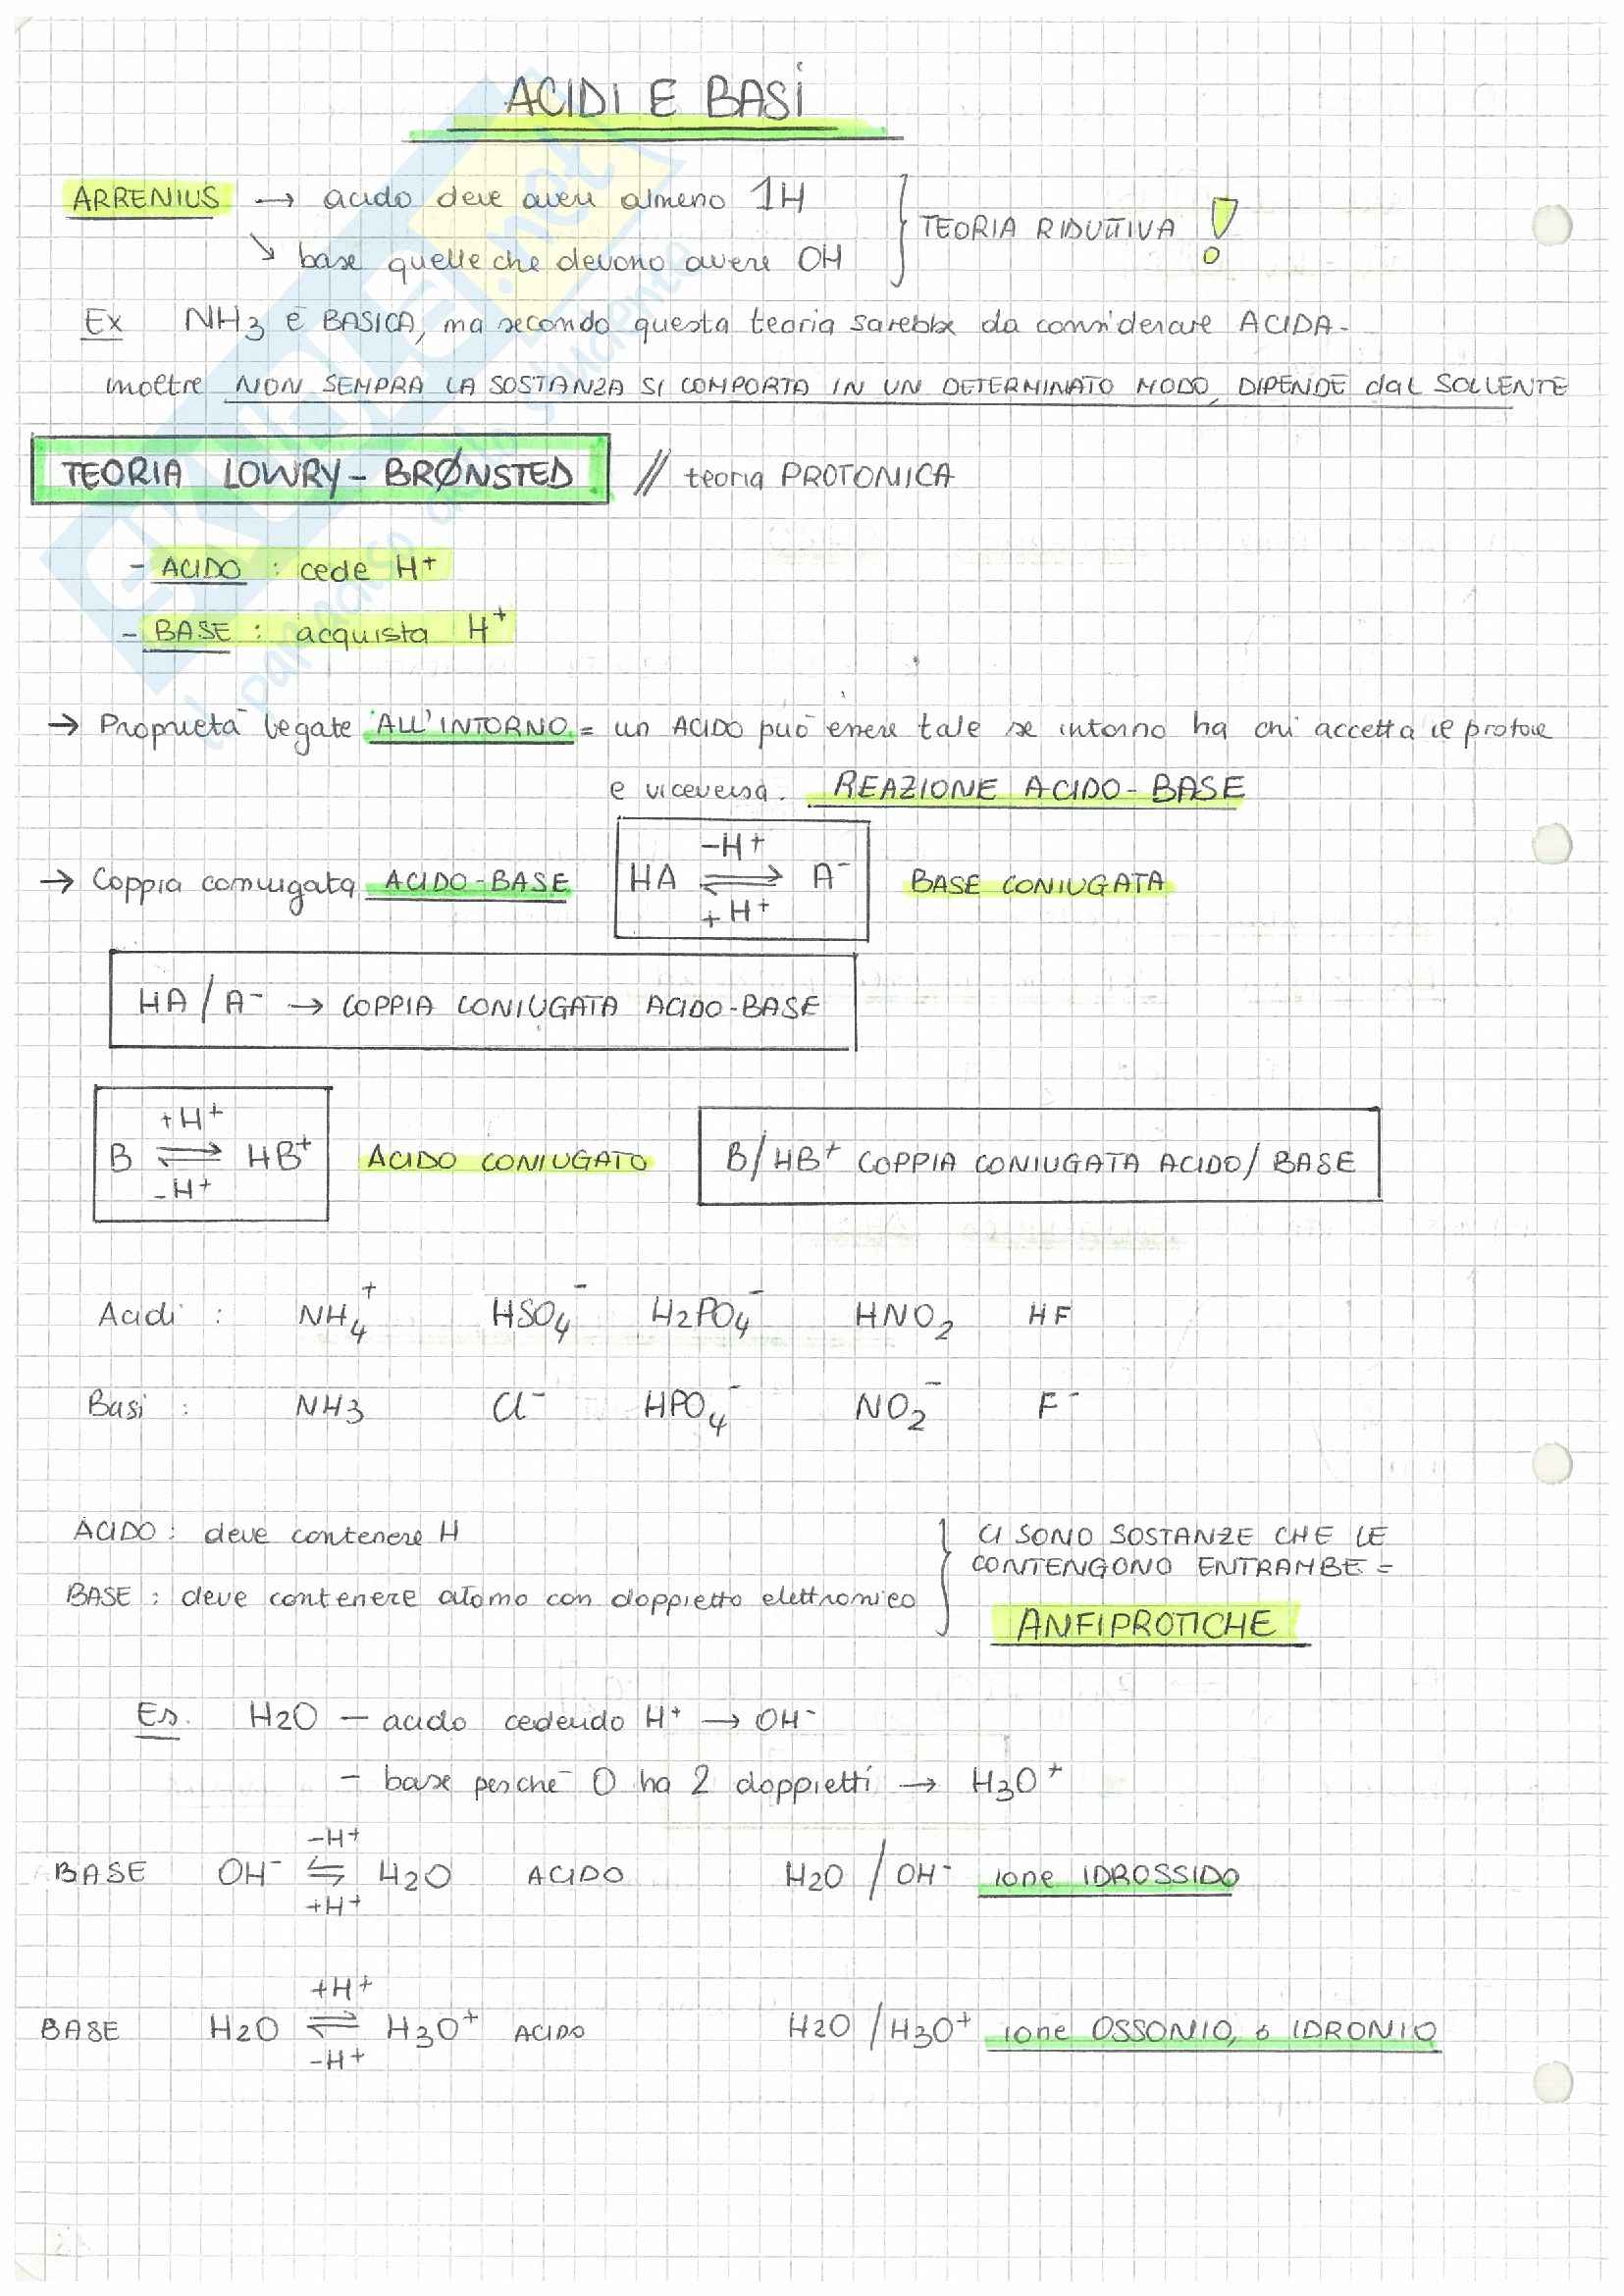 ACIDI E BASI
ARRENIUS → acido deve avere almeno 1H
↘ base quelle che devono avere OH
} TEORIA RIDUTTIVA !
Ex NH3 è BASICA, ma secondo questa teoria sarebbe da considerare ACIDA-
inoltre NON SEMPRA LA SOSTANZA SI COMPORTA IN UN DETERMINATO MODO, DIPENDE dal SOLLENTE
TEORIA LOWRY - BRØNSTED // teoria PROTONICA
- ACIDO : cede H+
- BASE : acquista H+
→ Proprietà legate ALL'INTORNO = un ACIDO può essere tale se intorno ha chi accetta il protone
e viceversa. REAZIONE ACIDO - BASE
-H+
→ Coppia coniugata ACIDO-BASE HA ⇌ A- BASE CONIUGATA
+H+
HA / A- → COPPIA CONIUGATA ACIDO-BASE
+H+
B ⇌ HB+ ACIDO CONIUGATO B/HB+ COPPIA CONIUGATA ACIDO/BASE
-H+
Acidi : NH4+ HSO4- H2PO4- HNO2 HF
Basi : NH3 Cl- HPO4- NO2- F-
ACIDO : deve contenere H
BASE : deve contenere atomo con doppietto elettronico
} CI SONO SOSTANZE CHE LE
CONTENGONO ENTRAMBE =
ANFIPROTICHE
Es. H2O - acido cedendo H+ → OH-
- base perché O ha 2 doppietti → H3O+
-H+
BASE OH- ⇋ H2O ACIDO H2O / OH- ione IDROSSIDO
+H+
+H+
BASE H2O ⇌ H3O+ ACIDO H2O / H3O+ ione OSSONIO, o IDRONIO
-H+